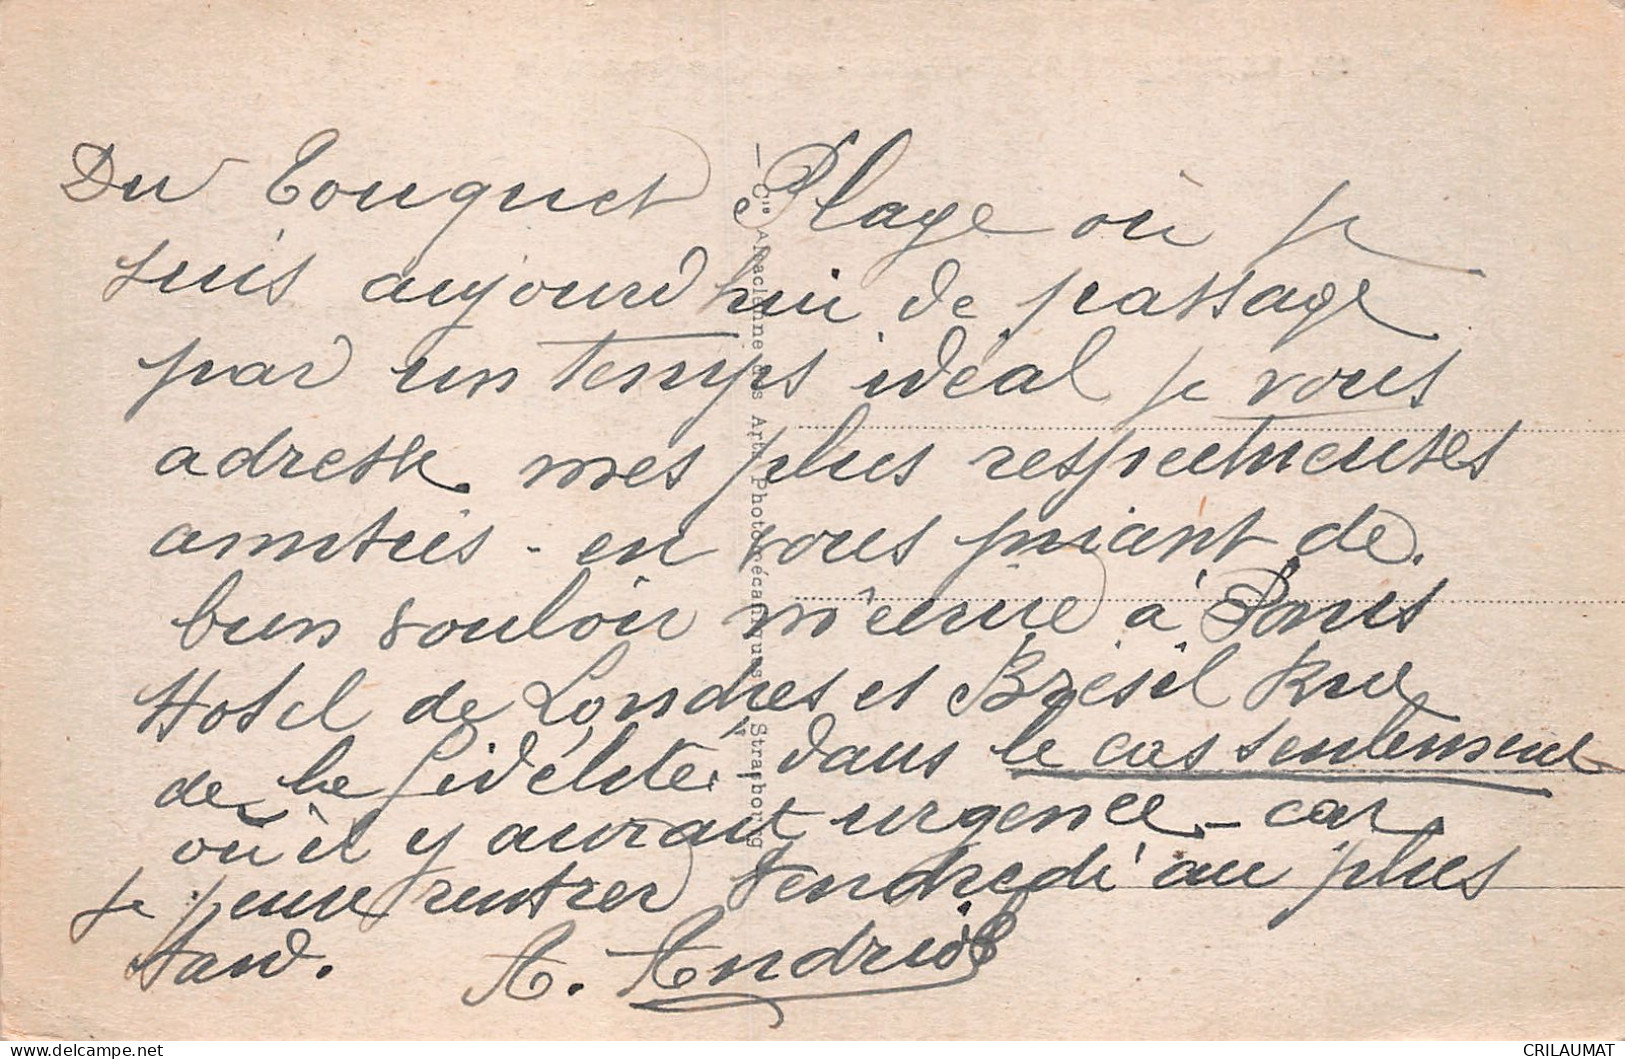 Du Touquet Plage où je
suis aujourd'hui de passage
par un temps idéal je vous
adresse mes plus respectueuses
amitiés - en vous priant de
bien vouloir m'écrire à Paris
Hotel de Londres et Brésil Rue
de la Fidélité, dans le cas seulement
où il y aurait urgence - car
je pense rentrer Vendredi au plus
tard. A. Andriol
— Cie Alsacienne des Arts Photomécaniques, Strasbourg
CRILAUMAT